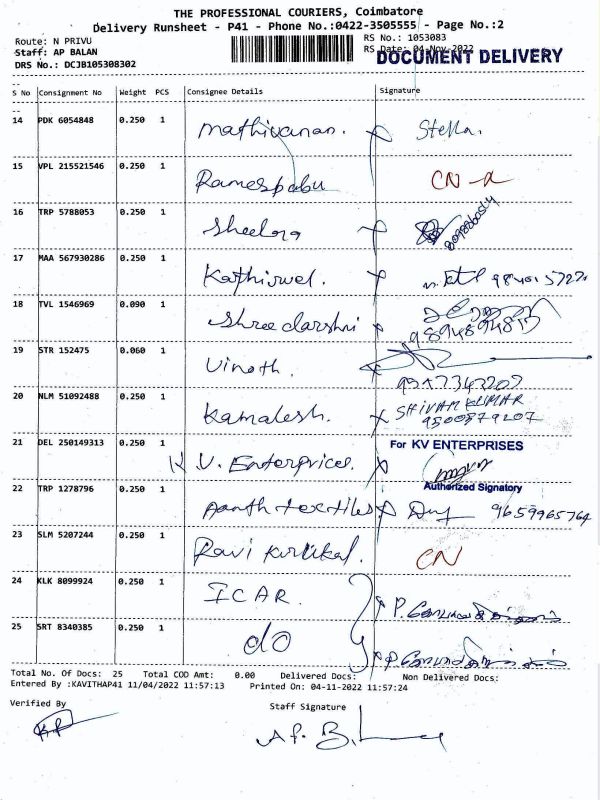 THE PROFESSIONAL COURIERS, Coimbatore
Delivery Runsheet - P41 - Phone No.:0422-3505555 - Page No.:2
Route: N PRIVU
RS No.: 1053083
Staff: AP BALAN
RS Date: 04-Nov-2022
DOCUMENT DELIVERY
DRS No.: DCJB105308302
S No Consignment No Weight PCS Consignee Details Signature
14 PDK 6054848 0.250 1 Mathivanan. Stella.
15 VPL 215521546 0.250 1 Rameshbabu CN
16 TRP 5788053 0.250 1 Sheelora
17 MAA 567930286 0.250 1 Kathirvel.
18 TVL 1546969 0.090 1 Shree darshni
9894894815
19 STR 152475 0.060 1 Vinoth.
20 NLM 51092488 0.250 1 Kamalesh. SHIVAM KUMAR
9500879207
21 DEL 250149313 0.250 1 K V. Enterprices. For KV ENTERPRISES
Authorized Signatory
22 TRP 1278796 0.250 1 textiles 9659965764
23 SLM 5207244 0.250 1 Ravi CN
24 KLK 8099924 0.250 1 ICAR.
25 SRT 8340385 0.250 1 do
Total No. Of Docs: 25 Total COD Amt: 0.00 Delivered Docs: Non Delivered Docs:
Entered By :KAVITHAP41 11/04/2022 11:57:13 Printed On: 04-11-2022 11:57:24
Verified By Staff Signature